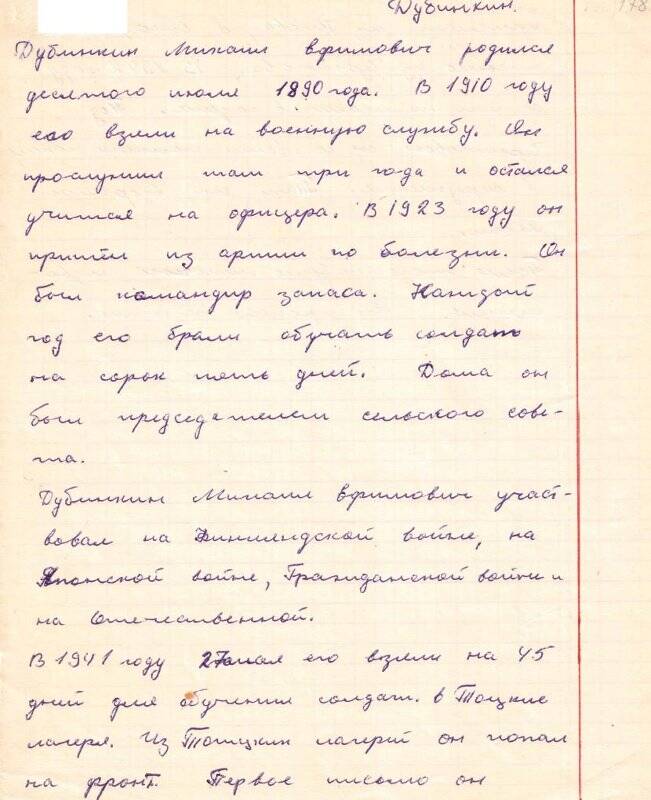 Дубинкин.
178
Дубинкин Михаил Ефимович родился
десятого июля 1890 года. В 1910 году
его взяли на военную службу. Он
прослужил там три года и остался
учится на офицера. В 1923 году он
пришёл из армии по болезни. Он
был командир запаса. Каждый
год его брали обучать солдат
на сорок пять дней. Дома он
был председателем сельского сове-
та.
Дубинкин Михаил Ефимович участ-
вовал на Финлендской войне, на
Японской войне, Гражданской войни и
на Отечественной.
В 1941 году 27 мая его взяли на 45
дней для обучения солдат. в Тоцкие
лагеря. Из Тоицкин лагерей он попал
на фронт. Первое письмо он